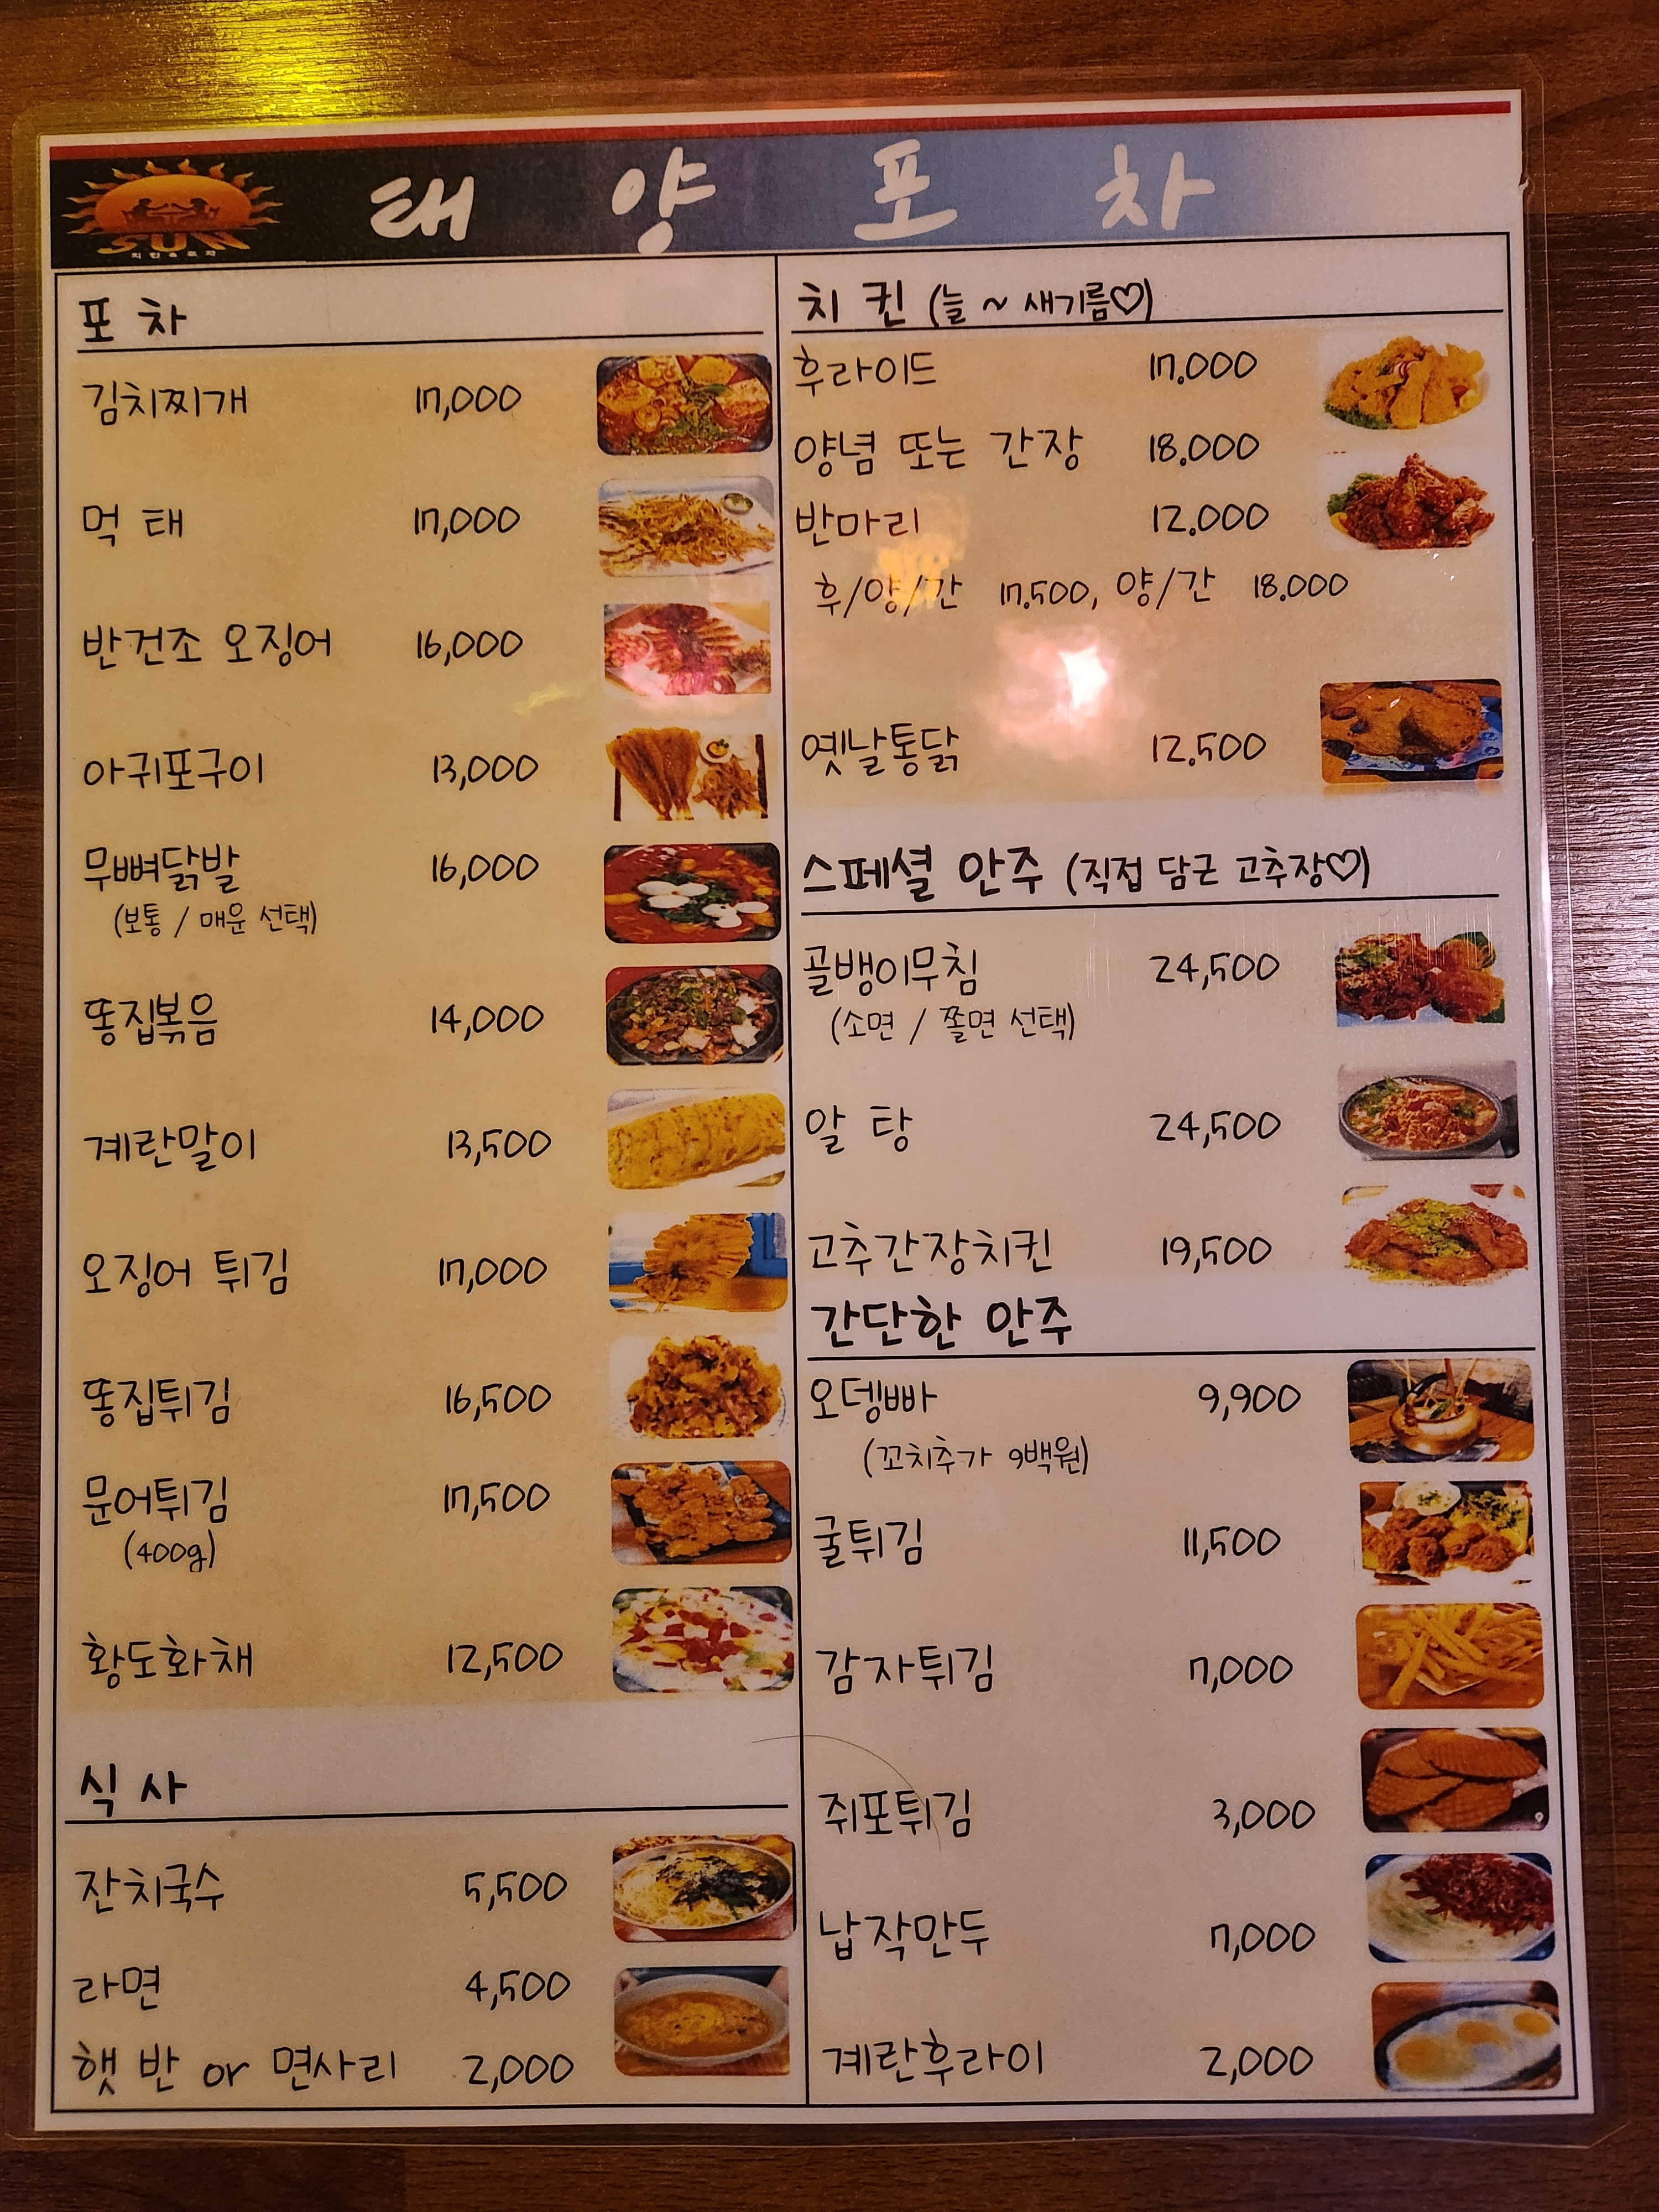 태양포차
SUN
치킨&포차
포차
김치찌개 17,000
먹태 17,000
반건조 오징어 16,000
아귀포구이 13,000
무뼈닭발 16,000
(보통 / 매운 선택)
똥집볶음 14,000
계란말이 13,500
오징어 튀김 17,000
똥집튀김 16,500
문어튀김 17,500
(400g)
황도화채 12,500
식사
잔치국수 5,500
라면 4,500
햇반 or 면사리 2,000
치킨 (늘 ~ 새기름♡)
후라이드 17.000
양념 또는 간장 18.000
반마리 12.000
후/양/간 17.500, 양/간 18.000
옛날통닭 12.500
스페셜 안주 (직접 담근 고추장♡)
골뱅이무침 24,500
(소면 / 쫄면 선택)
알탕 24,500
고추간장치킨 19,500
간단한 안주
오뎅빠 9,900
(꼬치추가 9백원)
굴튀김 11,500
감자튀김 7,000
쥐포튀김 3,000
납작만두 7,000
계란후라이 2,000